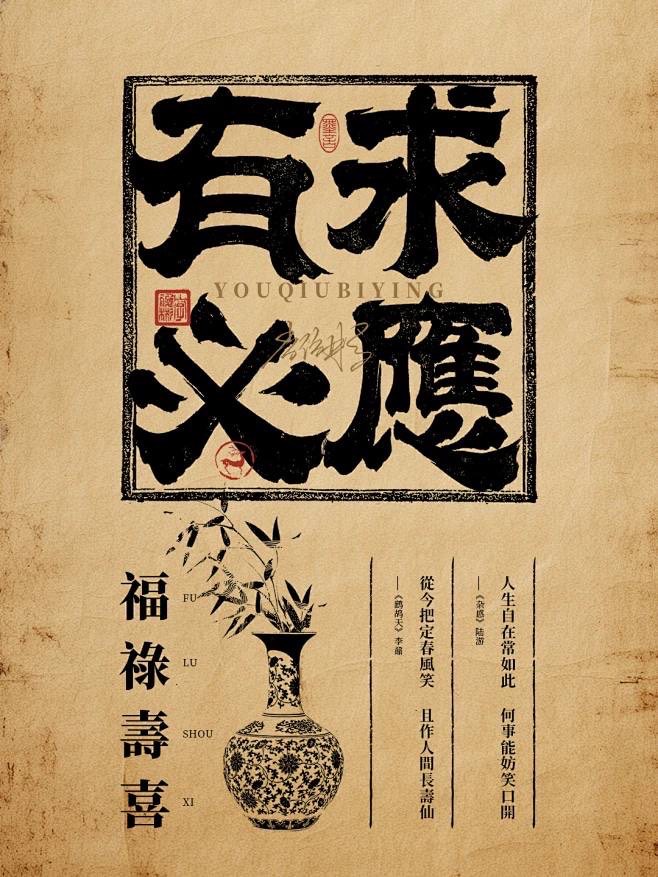 有求
必應
YOUQIUBIYING
福祿壽喜
FU
LU
SHOU
XI
人生自在常如此 何事能妨笑口開
——《杂感》陆游
從今把定春風笑 且作人間長壽仙
——《鹧鸪天》李鼐